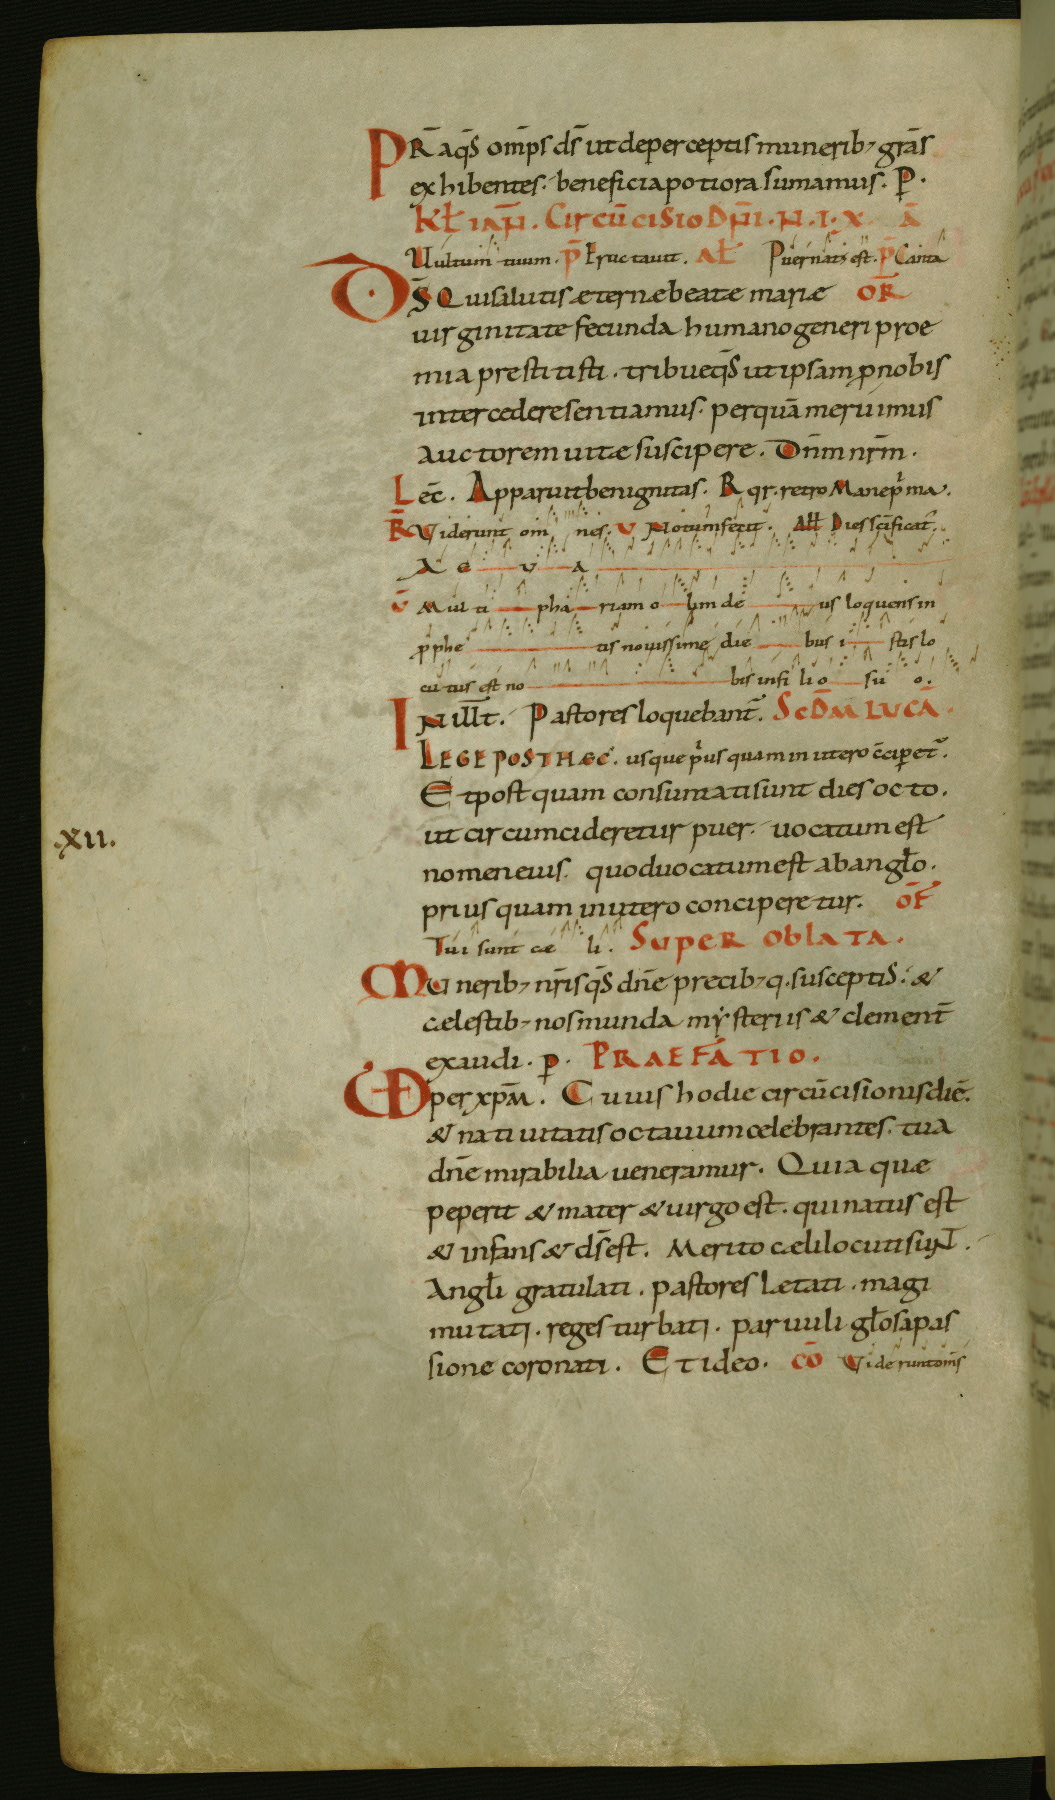 PR̄ aq̄s om̄ps d̄s ut de perceptis munerib; grās
exhibentes. beneficia potiora sumamus. P̄.
Kł IAN̄. CIRCŪCISIO DN̄I. N. I. X Ā
Uultum tuum. P̄ Eructauit. AŁ Puer nat; est. P̄ Canta
D̄S Qui salutis æternæ beatæ mariæ OR̄
uirginitate fecunda humano generi proe
mia prestitisti. tribue q̄s ut ipsam p nobis
intercedere sentiamus. per quā meruimus
auctorem uitæ suscipere. Dn̄m nr̄m.
Lec̄. Apparuit benignitas. R qr. retro Mane prima.
R̄ Viderunt om nes. V Notum fecit. Aƚƚ Dies sc̄ificat;
A e u a
V̄ Multi pha riam o lim de us loquens in
p phe tis nouissime die bus i stis lo
cutus est no bis in fi li o su o.
IN iƚƚt. Pastores loquebant̄. SCD̄M LUCĀ.
LEGE POST HÆC. usque prius quam in utero c̄ciperet̄.
Et postquam consumati sunt dies octo.
.XII.
ut circumcideretur puer. uocatum est
nomen eius. quod uocatum est ab angƚo.
prius quam in utero conciperetur. OF̄
Tui sunt cæ li. SUPER OBLATA.
Munerib; nr̄is q̄s dn̄e precib; q. susceptis. &
cælestib; nos munda mysteriis & clement̄
exaudi. p̄. PRAEFĀTIO.
UD per xp̄m. Cuius hodie circūcisionis diē.
& natiuitatis octauum celebrantes. tua
dn̄e mirabilia ueneramur. Quia quæ
peperit & mater & uirgo est. qui natus est
& infans & d̄s est. Merito cæli locuti sunt.
Angƚi gratulati. pastores lætati. magi
mutati. reges turbati. paruuli gƚosa pas
sione coronati. Et ideo. CŌ Viderunt om̄s